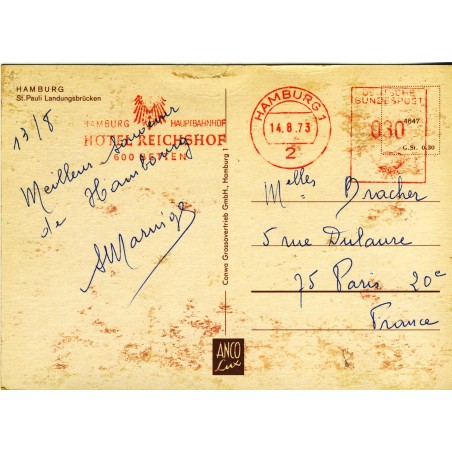 HAMBURG
St. Pauli Landungsbrücken
17/8
Meilleur souvenir
de Hambourg
HAMBURG HAUPTBAHNHOF
HOTEL REICHSHOF
600 BETTEN
HAMBURG 1
14.8.73
2
DEUTSCHE
BUNDESPOST
030
4647
G.St. 0.30
Conwa Grossovertrieb GmbH., Hamburg 1
Melles Bracher
5 rue Dulaure
75 Paris 20e
France
ANCO
Lux